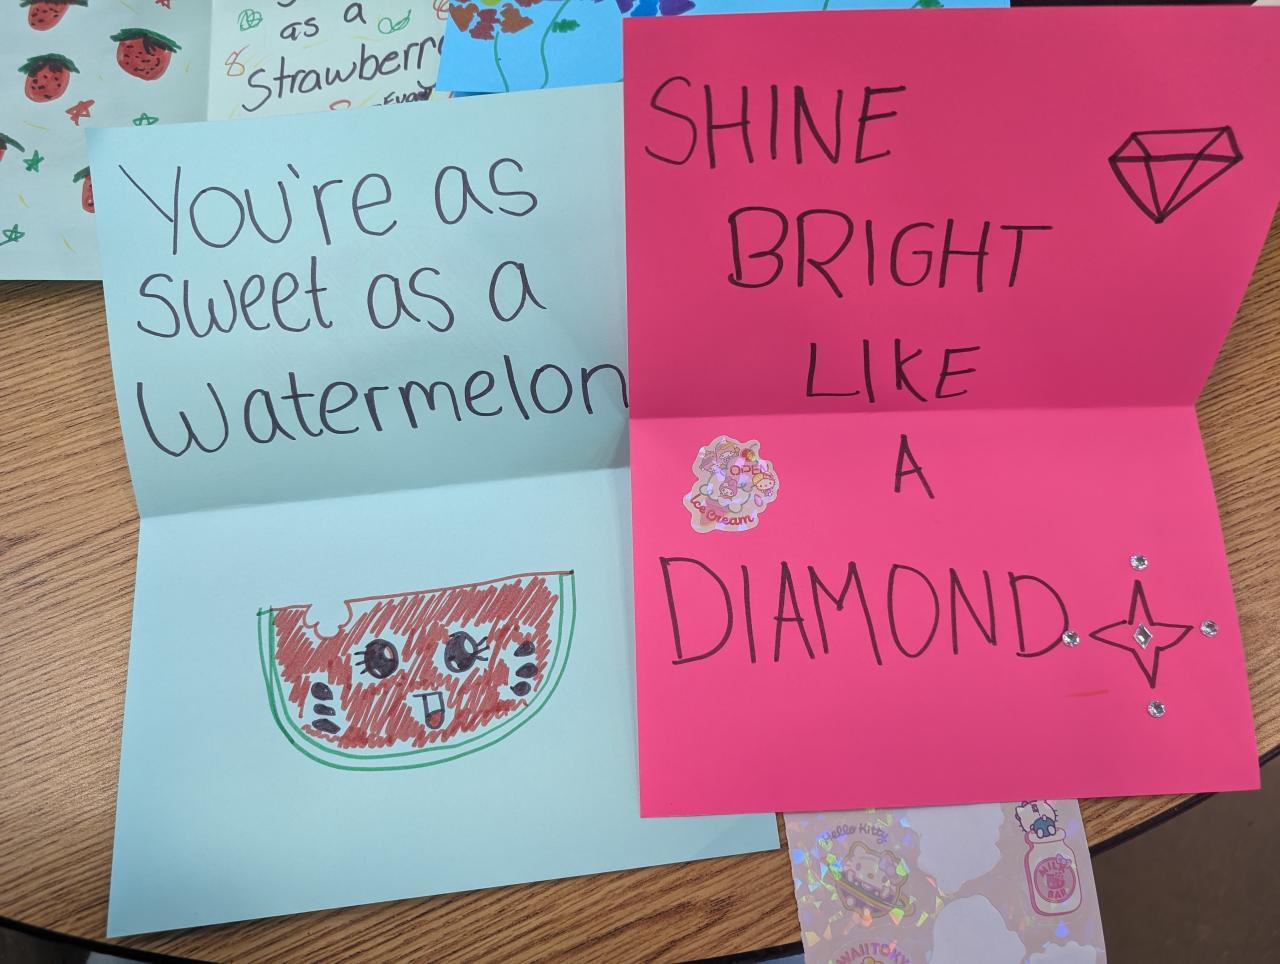 as a
Strawberr
You're as
sweet as a
Watermelon
SHINE
BRIGHT
LIKE
A
DIAMOND
OPEN
Ice Cream
Hello Kitty
MILK
BAR